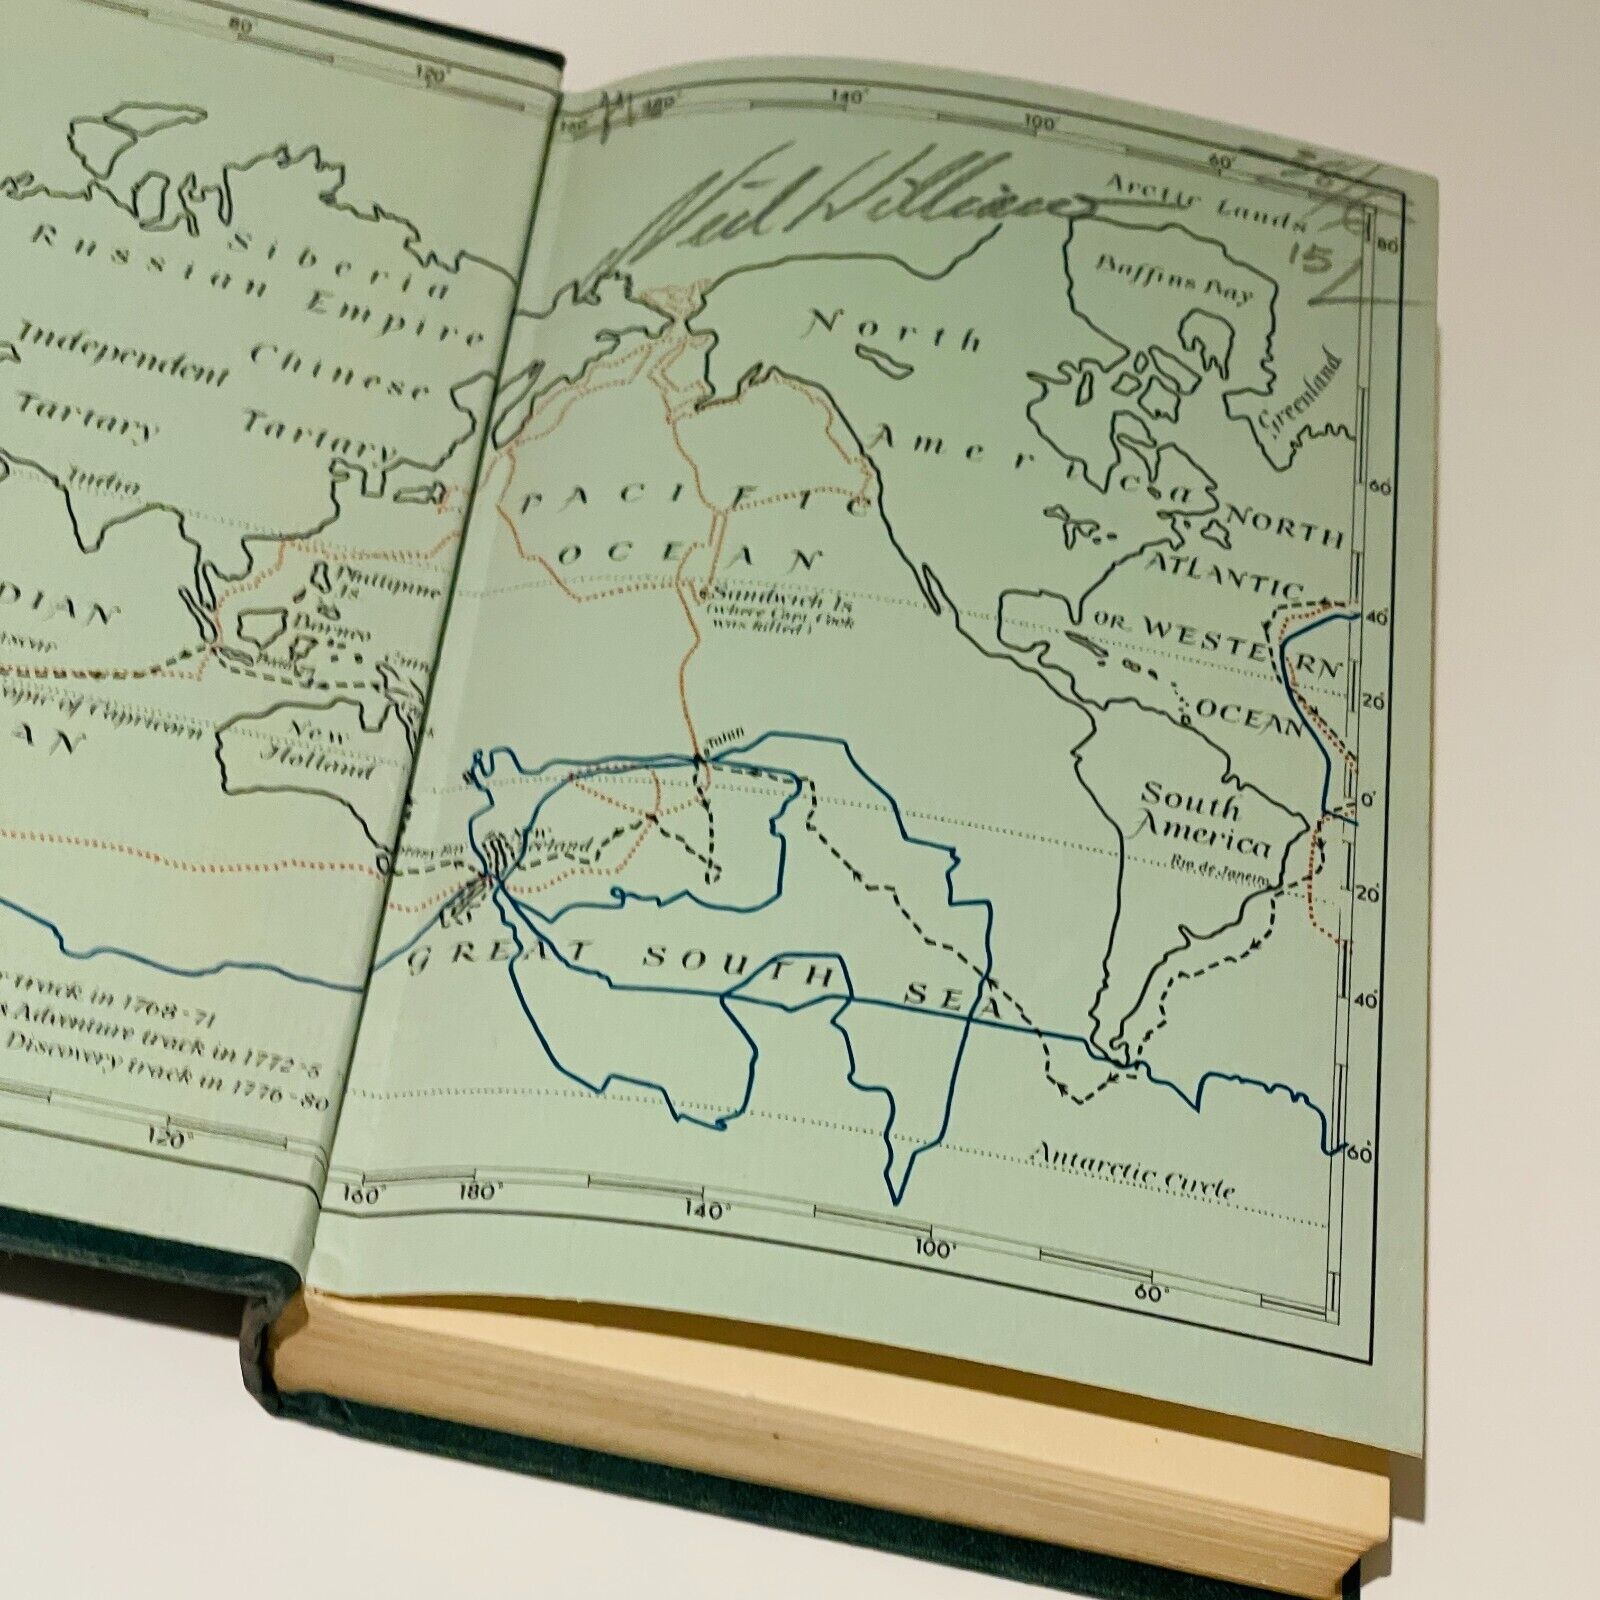 80°
120°
180°
140°
100°
60°
Neil Williams
Arctic Lands
80°
15
Baffins Bay
Siberia
Russian Empire
North
Greenland
Independent
Chinese
Tartary
Tartary
America
India
60°
PACIFIC
NORTH
OCEAN
ATLANTIC
Phillipine
Is
Sandwich Is
(where Capt. Cook
was killed)
40°
DIAN
Borneo
OR WESTERN
20°
OCEAN
Tropic of Capricorn
AN
New
Holland
South
America
0°
Botany Bay
New
Zealand
Rio de Janeiro
20°
GREAT SOUTH SEA
40°
track in 1768-71
Adventure track in 1772-5
Discovery track in 1776-80
60°
Antarctic Circle
120°
160°
180°
140°
100°
60°